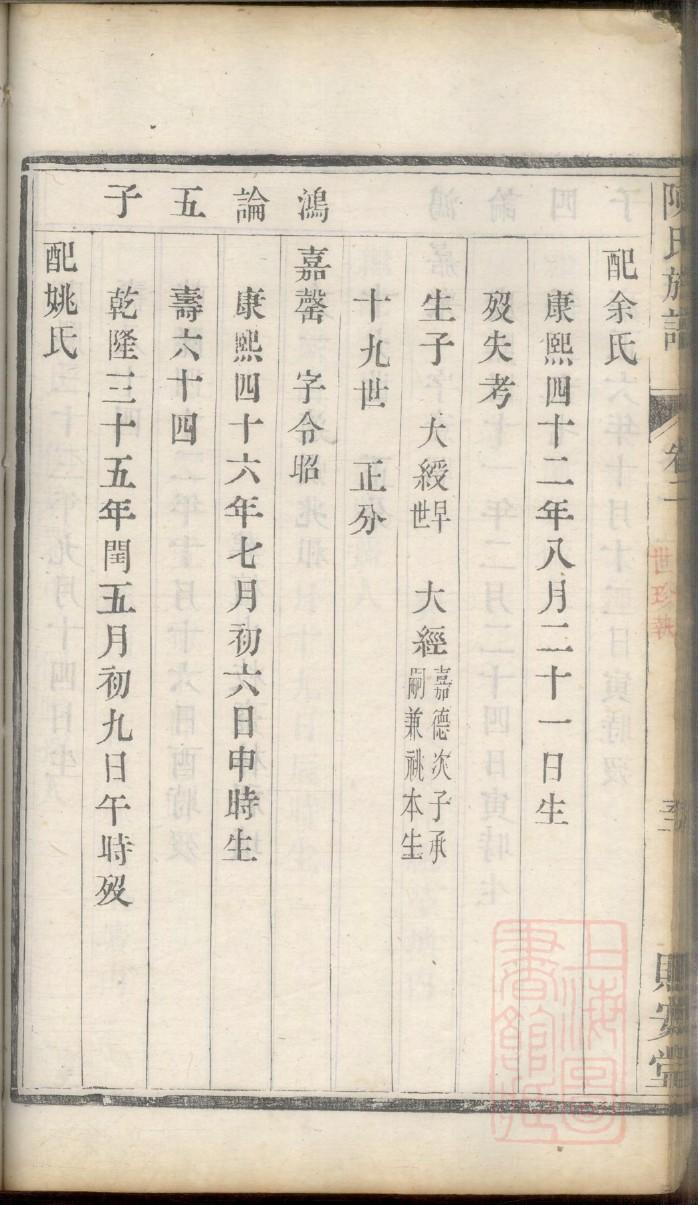 陳氏族譜
卷二
配余氏
康熙四十二年八月二十一日生
歿失考
生子 大綬早世 大經嘉德次子承嗣兼祧本生
十九世 正分
鴻 嘉罄 字令昭
論 康熙四十六年七月初六日申時生
五 壽六十四
子 乾隆三十五年閏五月初九日午時歿
配姚氏
上海圖書館藏